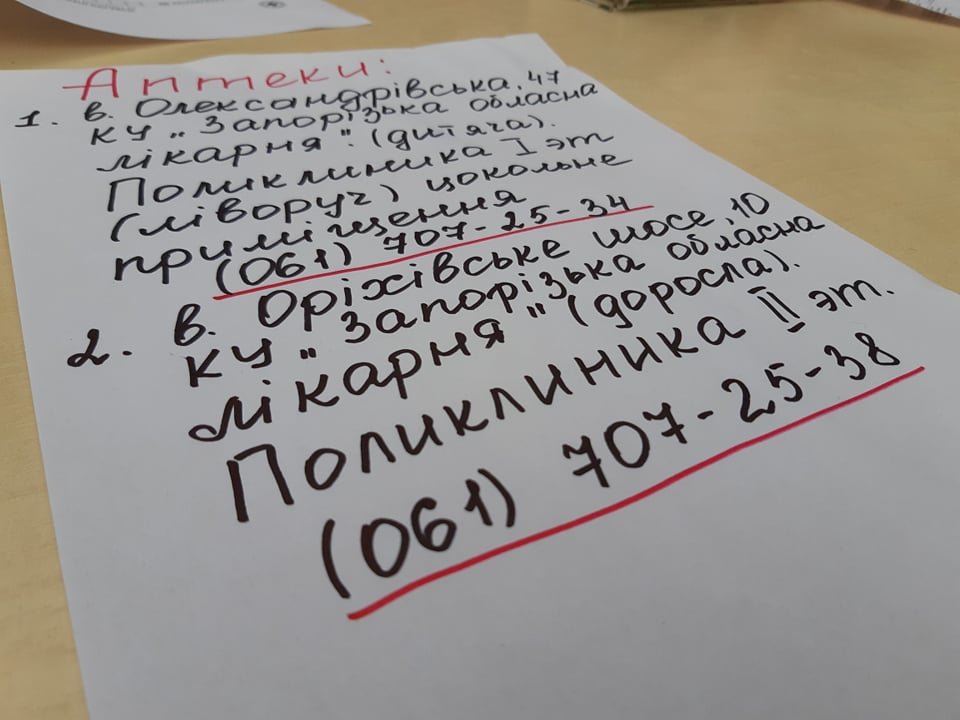 Аптеки:
1. в. Олександрівська, 47
КУ „Запорізька обласна
лікарня". (дитяча).
Поликлиника I эт
(ліворуч) цокольне
приміщення
(061) 707-25-34
2. в. Оріхівське шосе, 10
КУ „Запорізька обласна
лікарня" (доросла).
Поликлиника II эт.
(061) 707-25-38